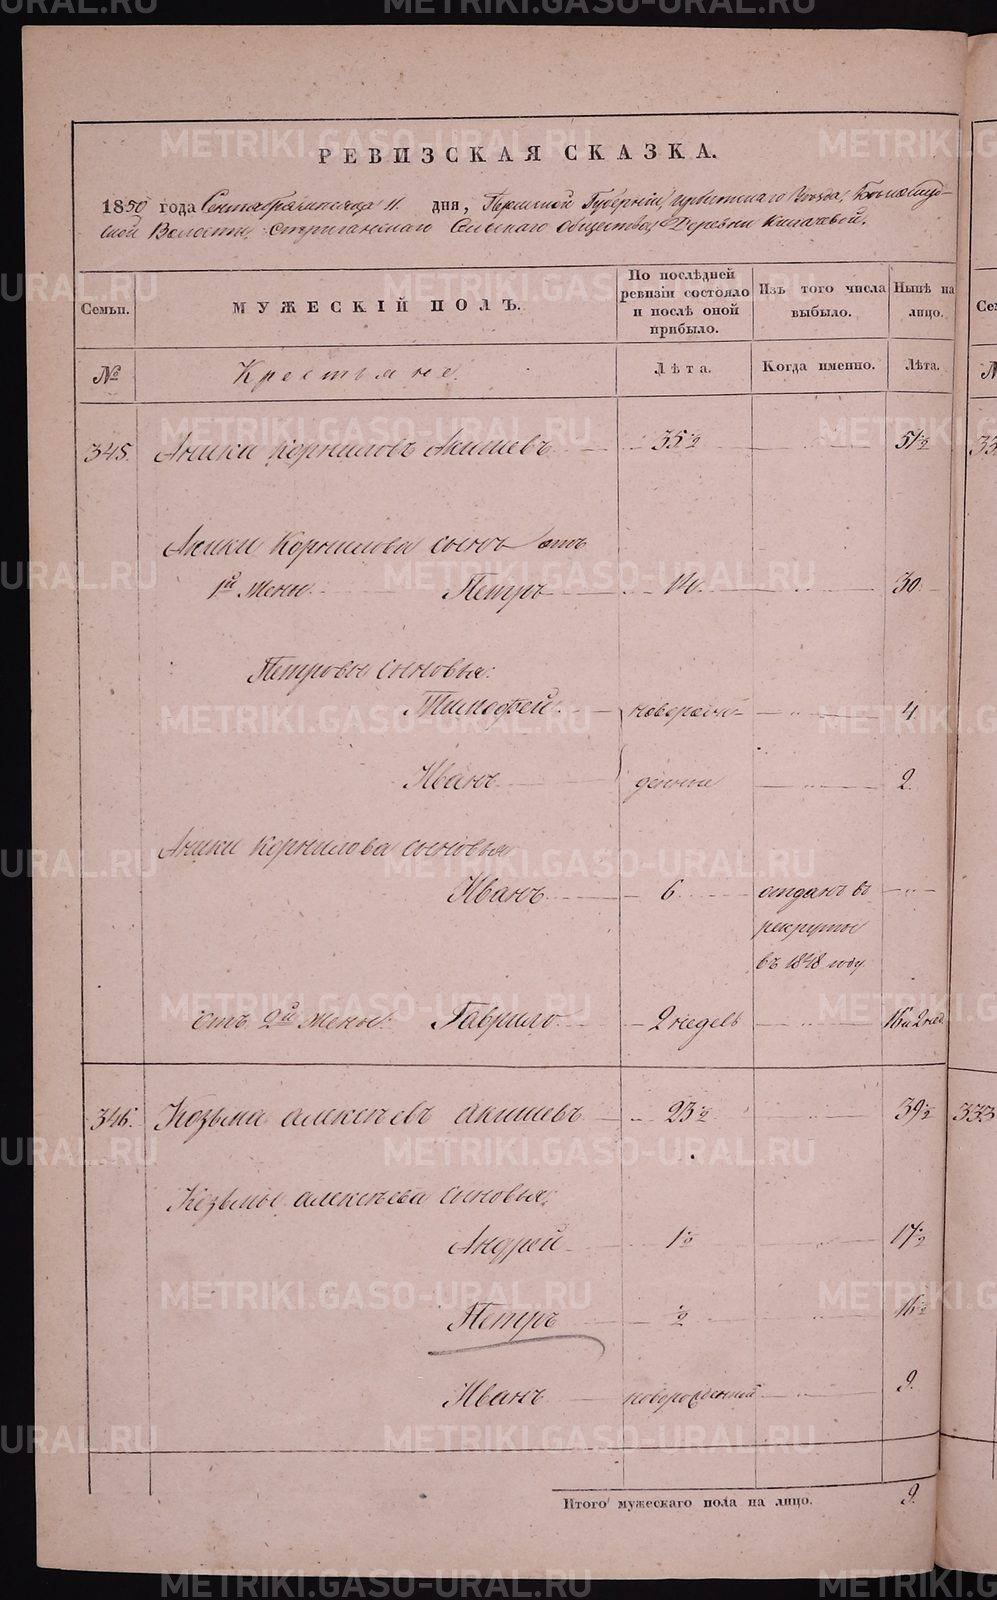 РЕВИЗСКАЯ СКАЗКА.
1850 года Сентября месяца 11 дня, Пермской Губернiи, Ирбитскаго Уезда,
ской Волости, Стриганскаго Сельскаго общества, Деревни
Семьи.
МУЖЕСКIЙ ПОЛЪ.
По послѣдней ревизiи состояло и послѣ оной прибыло.
Изъ того числа выбыло.
Нынѣ на лицо.
№
Крестьяне.
Лѣта.
Когда именно.
Лѣта.
345. Аники Корниловъ Акишевъ 35½ 51½
Аники Корнилова сынъ отъ
1й жены Петръ 14. 30.
Петровы сыновья:
Тимофей новорож- 4
Иванъ денные 2.
Аники Корнилова сыновья
Иванъ 6 отданъ въ
рекруты
въ 1848 году
отъ 2й жены: Гаврило 2 недель 16 и 2 нед
346. Козьма алексѣевъ акишевъ 23½ 39½
333
Козьмы алексѣева сыновья:
Андрей 1½ 17½
Петръ ½ 16½
Иванъ новорожденный 9.
Итого мужескаго пола на лицо. 9.
METRIKI.GASO-URAL.RU